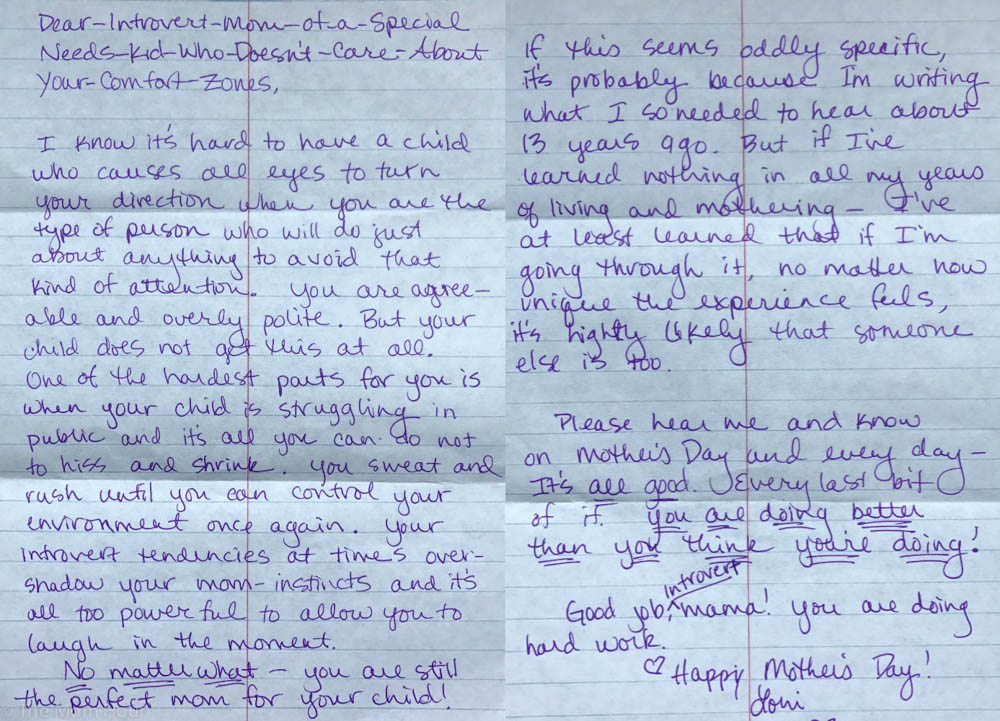 Dear-Introvert-Mom-of-a-Special
Needs-Kid-Who-Doesn't-Care-About
Your-Comfort-Zones,
I know it's hard to have a child
who causes all eyes to turn
your direction when you are the
type of person who will do just
about anything to avoid that
kind of attention. You are agree-
able and overly polite. But your
child does not get this at all.
One of the hardest parts for you is
when your child is struggling in
public and it's all you can do not
to hiss and shrink. You sweat and
rush until you can control your
environment once again. Your
introvert tendencies at times over-
shadow your mom-instincts and it's
all too powerful to allow you to
laugh in the moment.
No matter what - you are still
the perfect mom for your child!
© The Mom Hour
If this seems oddly specific,
it's probably because I'm writing
what I so needed to hear about
13 years ago. But if I've
learned nothing in all my years
of living and mothering - I've
at least learned that if I'm
going through it, no matter how
unique the experience feels,
it's highly likely that someone
else is too.
Please hear me and know
on Mother's Day and every day -
It's all good. Every last bit
of it. You are doing better
than you think you're doing!
Good job, introvert mama! You are doing
hard work.
♡ Happy Mother's Day!
Loni